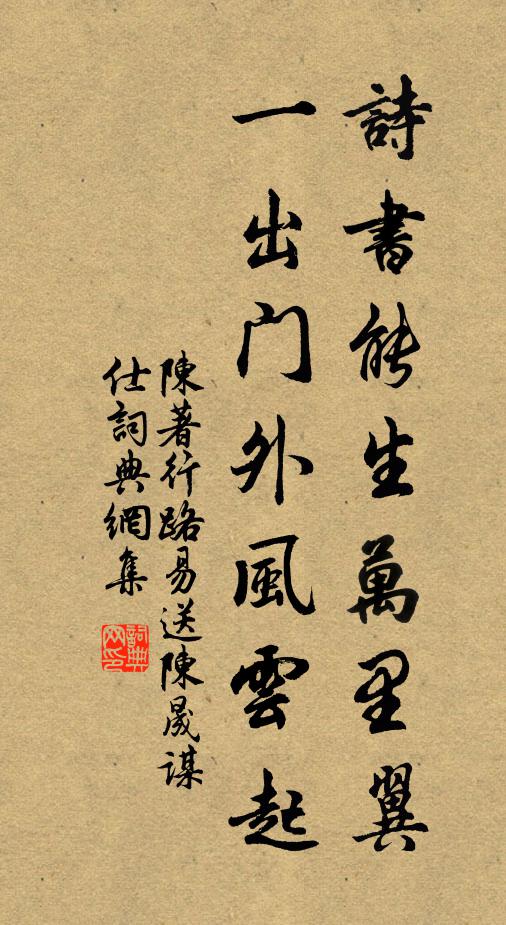 詩書能生萬里翼
一出門外風雲起
陳著行路易送陳晟謀
仕詞典網集
詞典網印